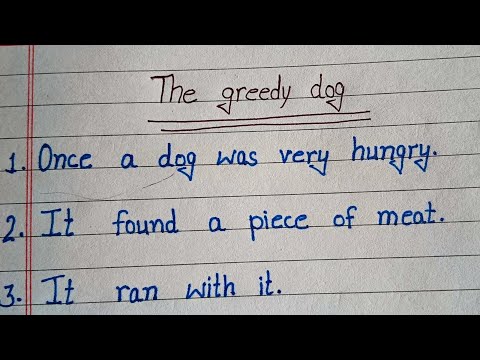 The greedy dog
1. Once a dog was very hungry.
2. It found a piece of meat.
3. It ran with it.